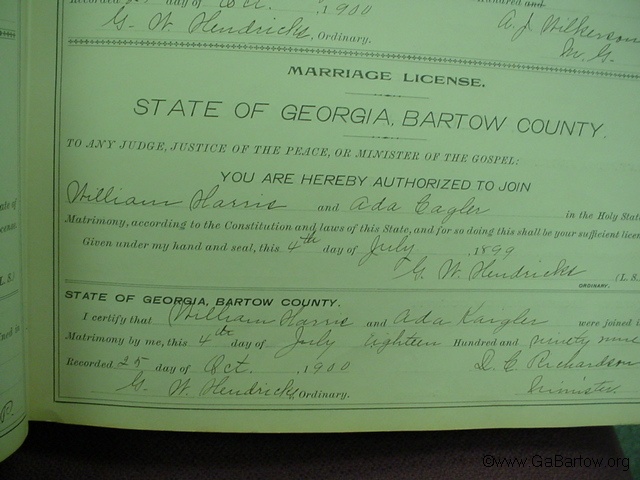 day of Oct. , 1900
Hundred and
G. W. Hendricks, Ordinary.
A. J. Wilkerson
M. G.
MARRIAGE LICENSE.
STATE OF GEORGIA, BARTOW COUNTY.
TO ANY JUDGE, JUSTICE OF THE PEACE, OR MINISTER OF THE GOSPEL:
YOU ARE HEREBY AUTHORIZED TO JOIN
William Harris and Ada Cagler in the Holy State
Matrimony, according to the Constitution and laws of this State, and for so doing this shall be your sufficient
Given under my hand and seal, this 4th day of July , 1899
G. W. Hendricks (L. S.
ORDINARY.
STATE OF GEORGIA, BARTOW COUNTY.
I certify that William Harris and Ada Kargler were joined
Matrimony by me, this 4th day of July Eighteen Hundred and ninety nine
Recorded 25 day of Oct. , 1900 D. C. Richardson
G. W. Hendricks, Ordinary.
©www.GaBartow.org